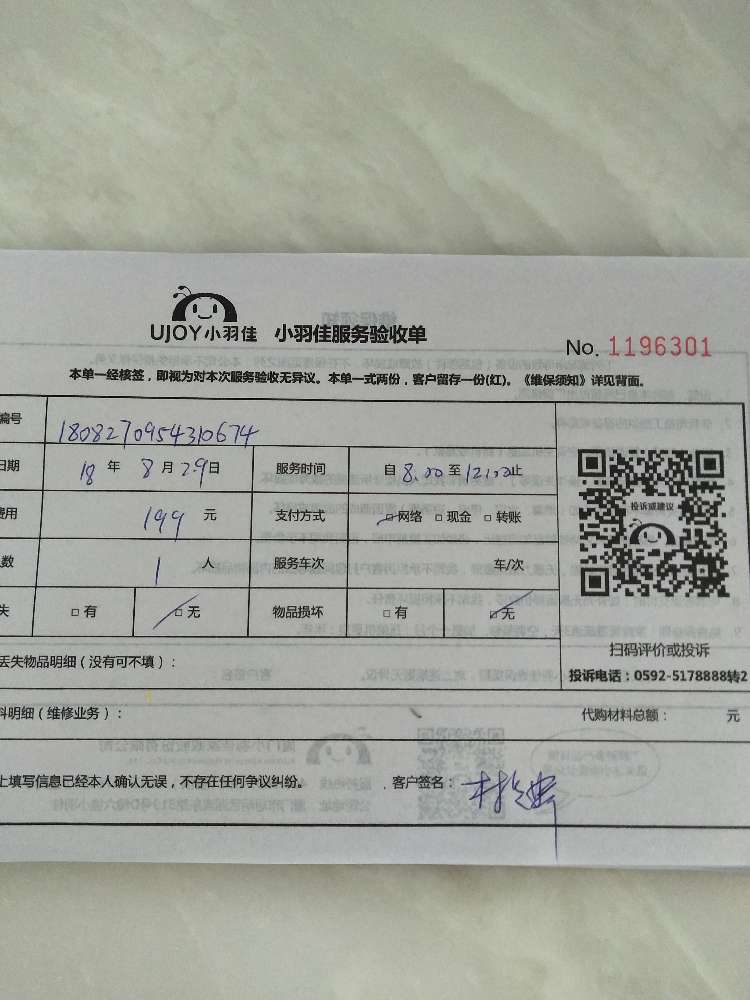 UJOY小羽佳 小羽佳服务验收单
No. 1196301
本单一经核签，即视为对本次服务验收无异议。本单一式两份，客户留存一份(红)。《维保须知》详见背面。
编号 1808270954310674
日期 18 年 8 月 29 日 服务时间 自 8.00 至 12:00 止
费用 199 元 支付方式 □ 网络 □ 现金 □ 转账
数 1 人 服务车次 车/次
失 □ 有 □ 无 物品损坏 □ 有 □ 无
投诉或建议
扫码评价或投诉
投诉电话：0592-5178888转2
丢失物品明细（没有可不填）：
料明细（维修业务）： 代购材料总额： 元
上填写信息已经本人确认无误，不存在任何争议纠纷。 客户签名：